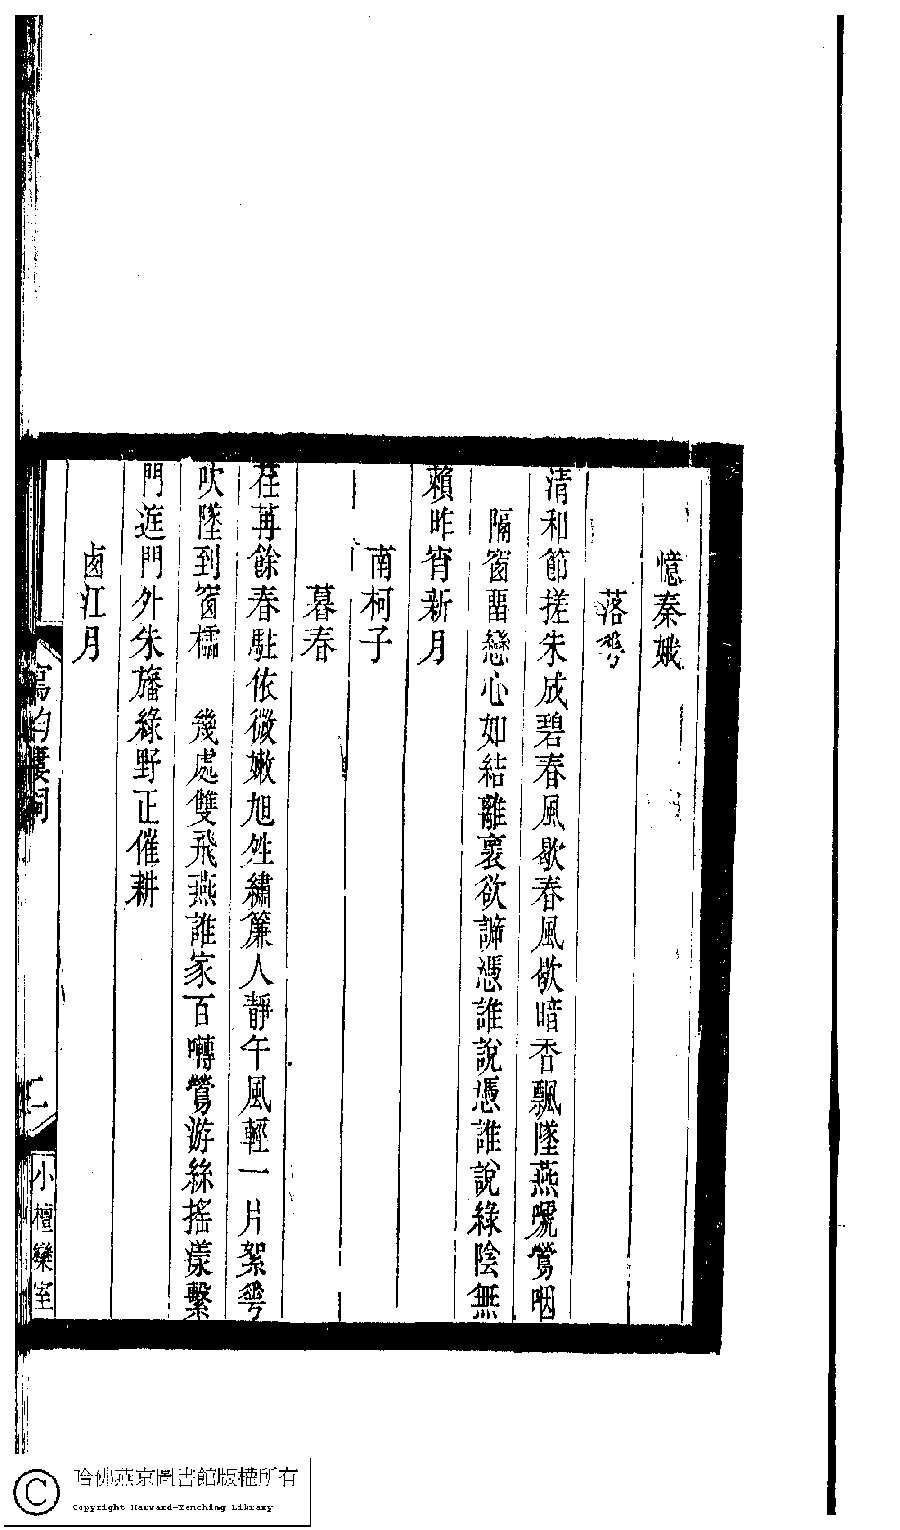 憶秦娥
落雩
清和節搓朱成碧春風歇春風歇暗香飄墜燕嚦鶯咽
隔窗畱戀心如結離衷欲諦憑誰說憑誰說綠陰無
賴昨宵新月
南柯子
暮春
荏苒餘春駐依微嫩旭甡繡簾人靜午風輕一片絮雩
吹墜到窗櫺　幾處雙飛燕誰家百囀鶯游絲搖漾繫
門逬門外朱旛綠野正催耕
鹵江月
寫韵樓詞
小檀欒室
哈佛燕京圖書館版權所有
Copyright Harvard-Yenching Library